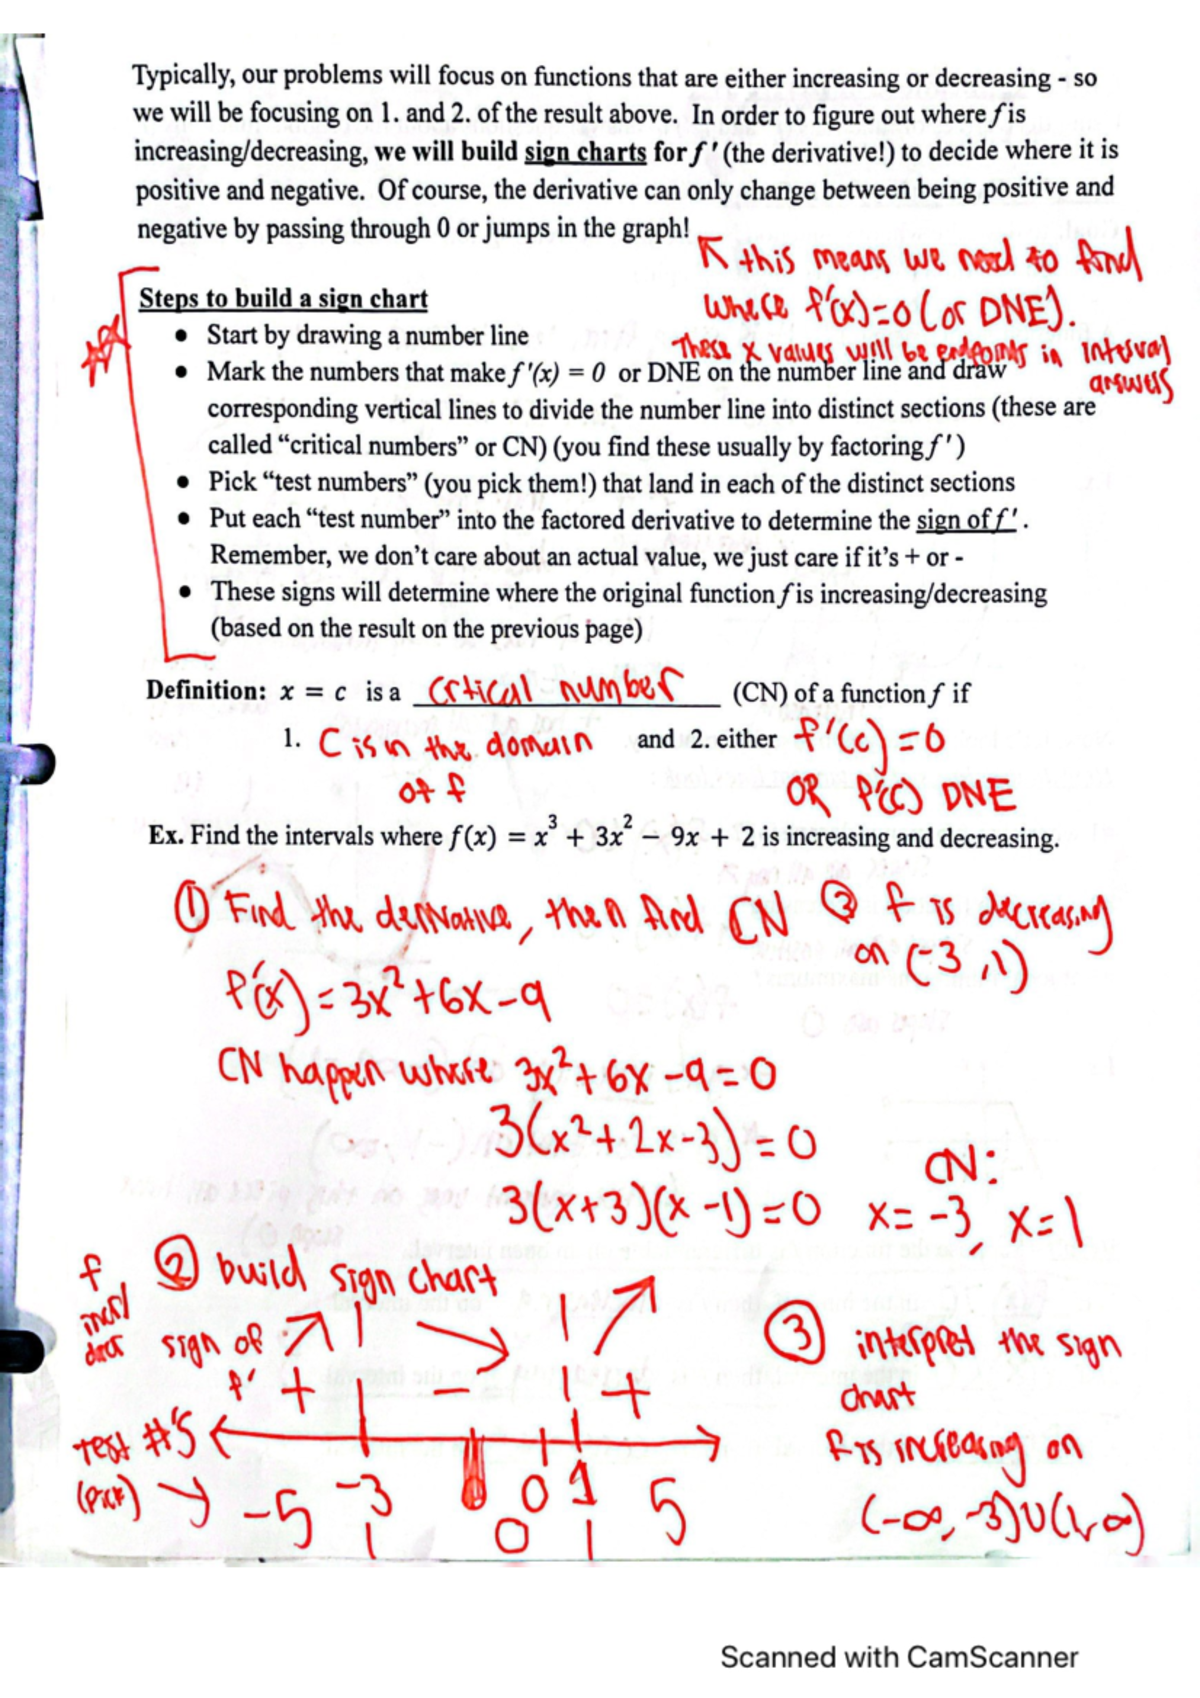 Typically, our problems will focus on functions that are either increasing or decreasing - so
we will be focusing on 1. and 2. of the result above. In order to figure out where f is
increasing/decreasing, we will build sign charts for f ' (the derivative!) to decide where it is
positive and negative. Of course, the derivative can only change between being positive and
negative by passing through 0 or jumps in the graph!
↖ this means we need to find
where f'(x)=0 (or DNE).
These x values will be endpoints in interval
answers
Steps to build a sign chart
● Start by drawing a number line
● Mark the numbers that make f '(x) = 0 or DNE on the number line and draw
corresponding vertical lines to divide the number line into distinct sections (these are
called “critical numbers” or CN) (you find these usually by factoring f ')
● Pick “test numbers” (you pick them!) that land in each of the distinct sections
● Put each “test number” into the factored derivative to determine the sign of f '.
Remember, we don’t care about an actual value, we just care if it’s + or -
● These signs will determine where the original function f is increasing/decreasing
(based on the result on the previous page)
Definition: x = c is a crtical number (CN) of a function f if
1. C is in the domain and 2. either f'(c)=0
of f OR f'(c) DNE
Ex. Find the intervals where f(x) = x³ + 3x² − 9x + 2 is increasing and decreasing.
① Find the derivative, then find CN ③ f is decreasing
on (-3,1)
f'(x)=3x²+6x-9
CN happen where 3x²+6x-9=0
3(x²+2x-3)=0
CN:
3(x+3)(x-1)=0 x=-3, x=1
f ② build sign chart
incr/
decr
sign of
f' + - +
③ interpret the sign
chart
test #'s
(pick) → -5 -3 0 0 1 5
f is increasing on
(-∞,-3)∪(1,∞)
Scanned with CamScanner